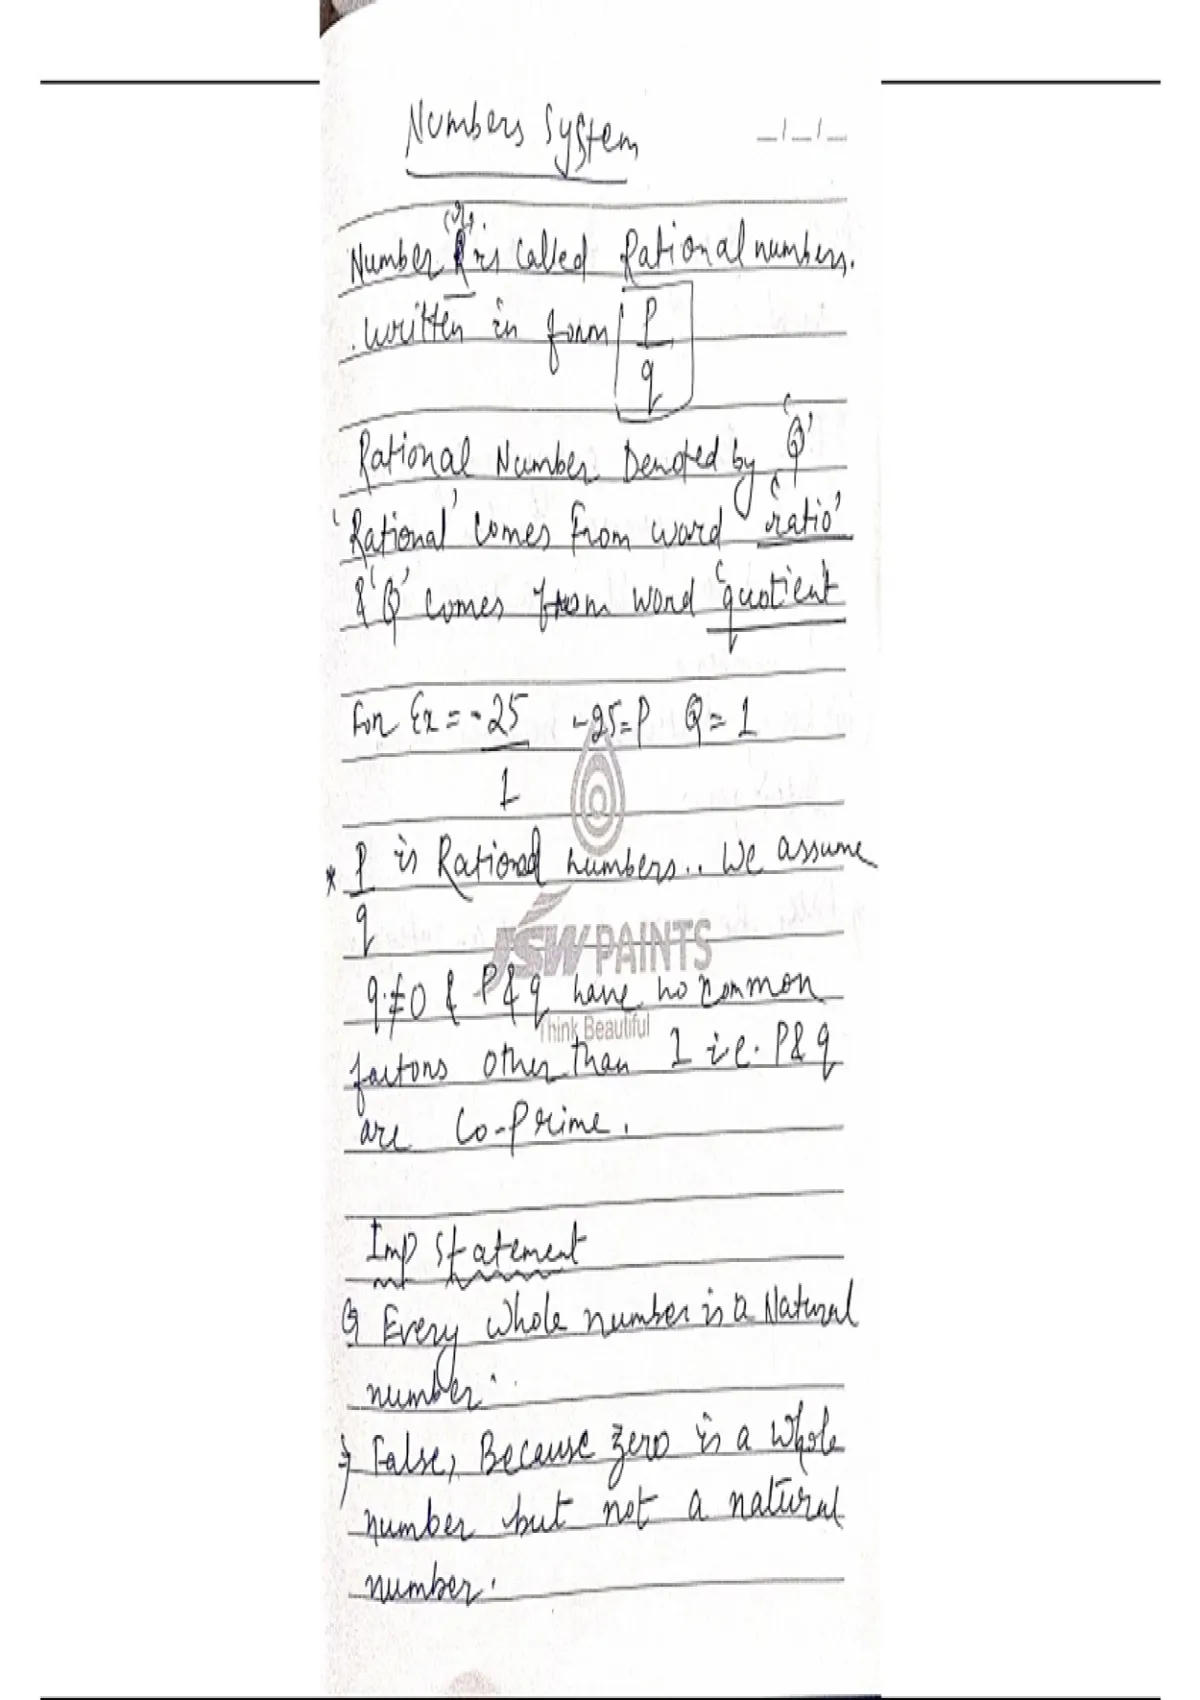 Numbers System
_/_/_
(r)
Number 'R' is called Rational numbers.
written in form p/q
Rational Number Denoted by 'Q'
'Rational' comes from word 'ratio'
& 'Q' comes from word 'quotient
for Ex = -25/1 -25=P Q=1
* P/q is Rational numbers.. We assume
JSW PAINTS
q≠0 & P & q have no common
Think Beautiful
factors other than 1 i.e. P & q
are Co-prime.
Imp Statement
Q Every whole number is a Natural
number.
⇒ False, Because zero is a whole
number but not a natural
number.